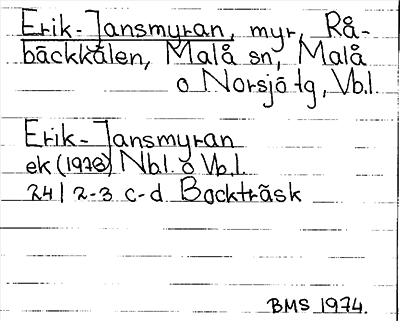 Erik-Jansmyran, myr, Rå-
bäckkålen, Malå sn, Malå
o Norsjö tg, Vb.l.
Erik-Jansmyran
ek (1978) Nb.l. o Vb.l.
24I 2-3 c-d Bockträsk
BMS 1974.